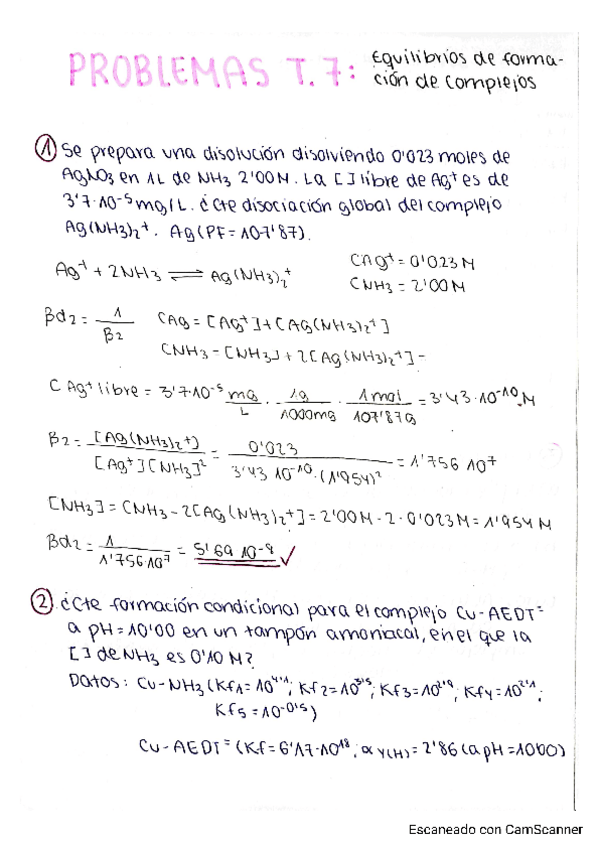 PROBLEMAS T.7: Equilibrios de forma-
ción de complejos
① Se prepara una disolución disolviendo 0'023 moles de
AgNO3 en 1L de NH3 2'00M. La [ ] libre de Ag+ es de
3'7·10-5 mg/L. ¿Cte disociación global del complejo
Ag(NH3)2+. Ag(PF=107'87).
Ag+ + 2NH3 ⇌ Ag(NH3)2+ CAg+ = 0'023M
CNH3 = 2'00M
βd2 = 1/β2 CAg = [Ag+]+[Ag(NH3)2+]
CNH3 = [NH3]+2[Ag(NH3)2+] -
CAg+ libre = 3'7·10-5 mg/L · 1g/1000mg · 1mol/107'87g = 3'43·10-10 M
β2 = [Ag(NH3)2+]/[Ag+][NH3]2 = 0'023/3'43 10-10·(1'954)2 = 1'756 107
[NH3] = CNH3 - 2[Ag(NH3)2+] = 2'00M - 2·0'023M = 1'954 M
βd2 = 1/1'756·107 = 5'69 10-8 ✓
② ¿Cte formación condicional para el complejo Cu-AEDT=
a pH=10'00 en un tampón amoniacal, en el que la
[ ] de NH3 es 0'10 M?
Datos: Cu-NH3 (Kf1=104'1; Kf2=103'5; Kf3=102'9; Kf4=102'1;
Kf5=10-0'5)
Cu-AEDT= (Kf=6'17·1018; αY(H)=2'86 (a pH=10'00)
Escaneado con CamScanner